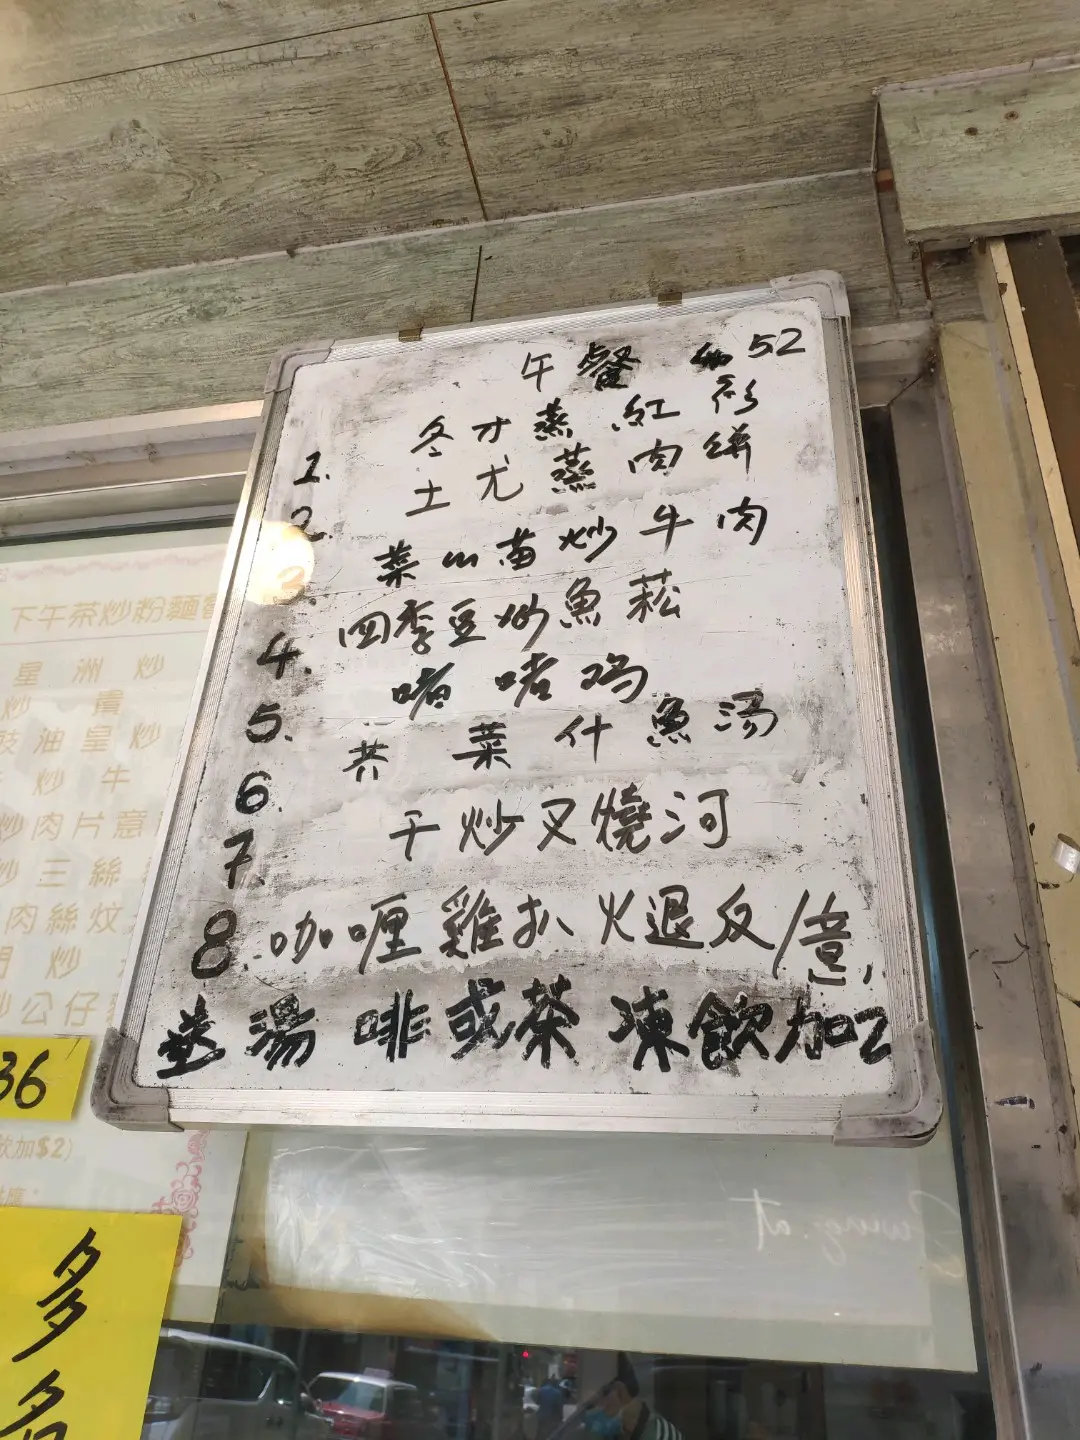 午餐 52
1. 冬才蒸紅衫
2. 土尤蒸肉餅
3. 菜心苗炒牛肉
4. 四季豆炒魚菘
5. 啫啫鸡
6. 芥菜什魚湯
7. 干炒叉燒河
8. 咖喱雞扒火退反/意
送湯 啡或茶 凍飲加2
下午茶炒粉麵
星洲炒
炒貴
豉油皇炒
炒牛
炒肉片意
炒三絲
肉絲炆
炒
炒公仔
36
飲加$2)
多